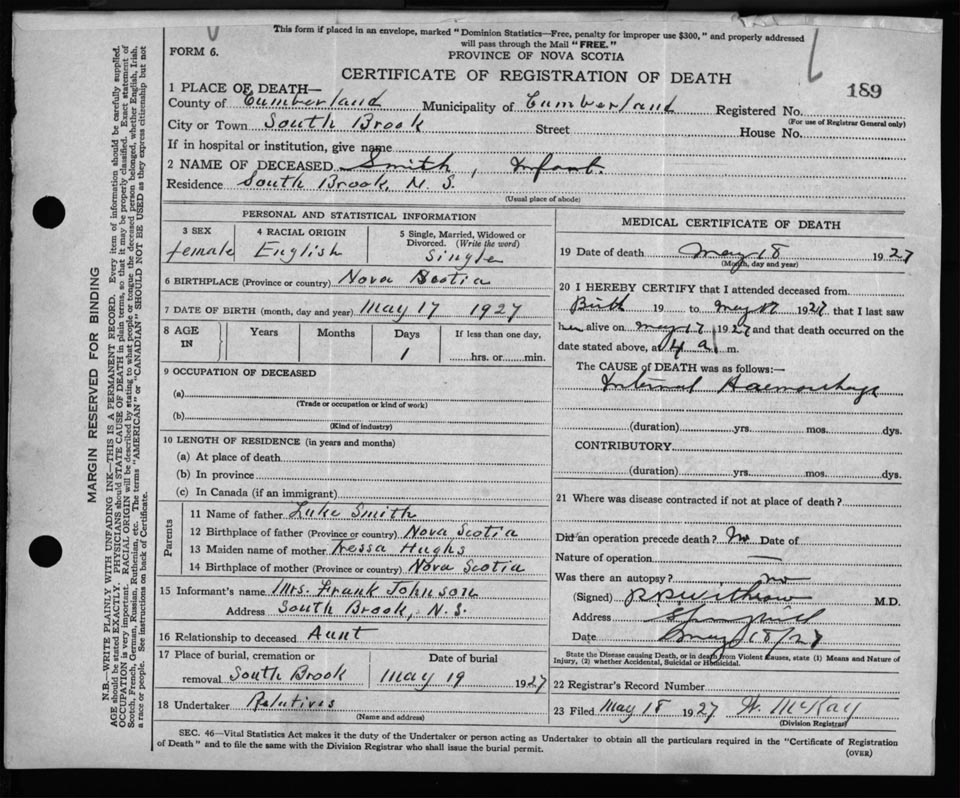 This form if placed in an envelope, marked "Dominion Statistics—Free, penalty for improper use $300," and properly addressed
will pass through the Mail "FREE."
FORM 6.
PROVINCE OF NOVA SCOTIA
CERTIFICATE OF REGISTRATION OF DEATH
189
1 PLACE OF DEATH—
County of Cumberland Municipality of Cumberland Registered No.
(For use of Registrar General only)
City or Town South Brook Street House No.
If in hospital or institution, give name
2 NAME OF DECEASED Smith, Infant.
Residence South Brook, N. S.
(Usual place of abode)
PERSONAL AND STATISTICAL INFORMATION
3 SEX female
4 RACIAL ORIGIN English
5 Single, Married, Widowed or
Divorced. (Write the word)
Single
6 BIRTHPLACE (Province or country) Nova Scotia
7 DATE OF BIRTH (month, day and year) May 17 1927
8 AGE IN Years Months Days 1 If less than one day,
hrs. or min.
9 OCCUPATION OF DECEASED
(a)
(Trade or occupation or kind of work)
(b)
(Kind of industry)
10 LENGTH OF RESIDENCE (in years and months)
(a) At place of death
(b) In province
(c) In Canada (if an immigrant)
Parents
11 Name of father Luke Smith
12 Birthplace of father (Province or country) Nova Scotia
13 Maiden name of mother Tressa Hughs
14 Birthplace of mother (Province or country) Nova Scotia
15 Informant's name Mrs. Frank Johnson
Address South Brook, N. S.
16 Relationship to deceased Aunt
17 Place of burial, cremation or Date of burial
removal South Brook May 19 1927
18 Undertaker Relatives
(Name and address)
MEDICAL CERTIFICATE OF DEATH
19 Date of death May 18 1927
(Month, day and year)
20 I HEREBY CERTIFY that I attended deceased from
Birth 19 to May 17 1927 that I last saw
her alive on May 17 1927 and that death occurred on
date stated above, at 4 a m.
The CAUSE of DEATH was as follows:—
Internal Haemorrhage
(duration) yrs. mos. dys.
CONTRIBUTORY
(duration) yrs. mos. dys.
21 Where was disease contracted if not at place of death?
Did an operation precede death? No Date of
Nature of operation —
Was there an autopsy? no
(Signed) Withrow M.D.
Address Springhill
Date May 18/27
State the Disease causing Death, or in death from Violent Causes, state (1) Means and Nature of
Injury, (2) whether Accidental, Suicidal or Homicidal.
22 Registrar's Record Number
23 Filed May 18 1927 W. McKay
(Division Registrar)
SEC. 46—Vital Statistics Act makes it the duty of the Undertaker or person acting as Undertaker to obtain all the particulars required in the "Certificate of Registration
of Death" and to file the same with the Division Registrar who shall issue the burial permit.
(OVER)
MARGIN RESERVED FOR BINDING
N.B.—WRITE PLAINLY WITH UNFADING INK—THIS IS A PERMANENT RECORD. Every item of information should be carefully supplied.
AGE should be stated EXACTLY. PHYSICIANS should STATE CAUSE OF DEATH in plain terms, so that it may be properly classified. Exact statement of
OCCUPATION is very important. RACIAL ORIGIN will be described by stating to what people or tongue the deceased person belonged, whether English, Irish,
Scotch, French, German, Russian, Ruthenian, etc. The terms "AMERICAN" or "CANADIAN" SHOULD NOT BE USED as they express citizenship but not
a race or people. See instructions on back of Certificate.